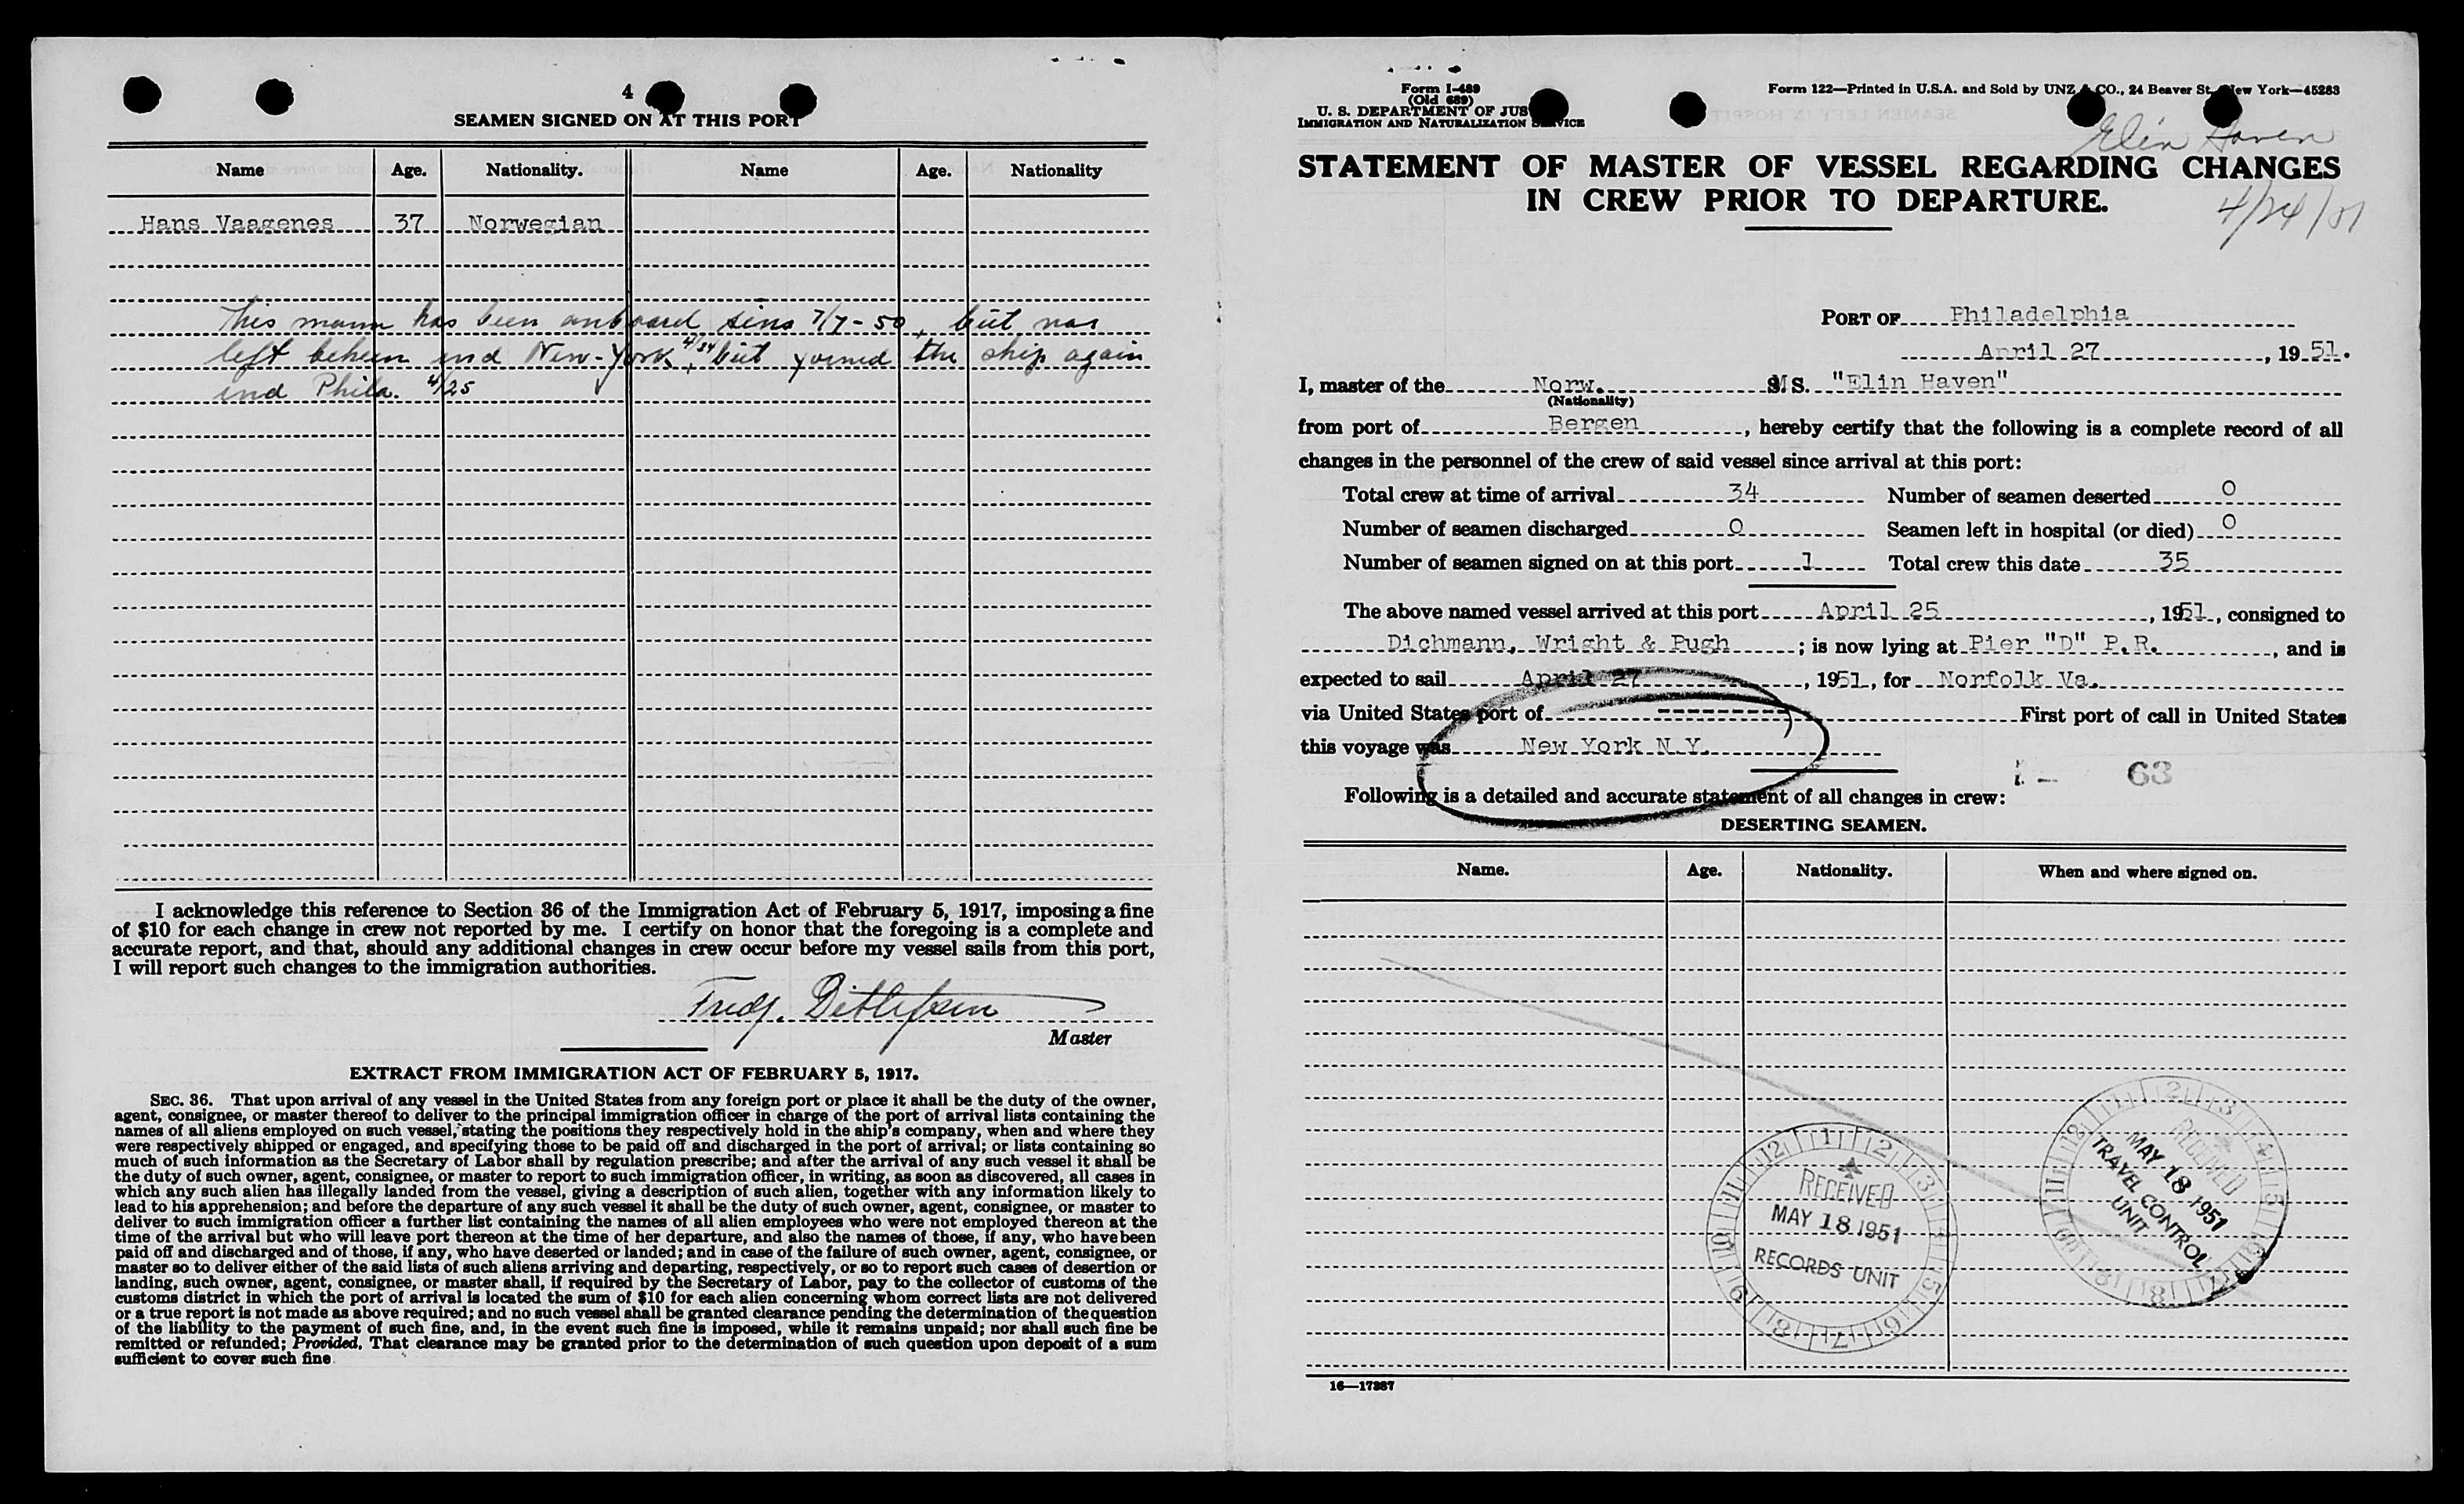 4
SEAMEN SIGNED ON AT THIS PORT
Name Age. Nationality. Name Age. Nationality
Hans Vaagenes 37 Norwegian
This mann has been onboard sins 7/7-50, but was
left behein ind New-York 4/24, but yoined the ship again
ind Phila. 4/25
I acknowledge this reference to Section 36 of the Immigration Act of February 5, 1917, imposing a fine
of $10 for each change in crew not reported by me. I certify on honor that the foregoing is a complete and
accurate report, and that, should any additional changes in crew occur before my vessel sails from this port,
I will report such changes to the immigration authorities.
Fredj. Ditlefsen
Master
EXTRACT FROM IMMIGRATION ACT OF FEBRUARY 5, 1917.
SEC. 36. That upon arrival of any vessel in the United States from any foreign port or place it shall be the duty of the owner,
agent, consignee, or master thereof to deliver to the principal immigration officer in charge of the port of arrival lists containing the
names of all aliens employed on such vessel, stating the positions they respectively hold in the ship's company, when and where they
were respectively shipped or engaged, and specifying those to be paid off and discharged in the port of arrival; or lists containing so
much of such information as the Secretary of Labor shall by regulation prescribe; and after the arrival of any such vessel it shall be
the duty of such owner, agent, consignee, or master to report to such immigration officer, in writing, as soon as discovered, all cases in
which any such alien has illegally landed from the vessel, giving a description of such alien, together with any information likely to
lead to his apprehension; and before the departure of any such vessel it shall be the duty of such owner, agent, consignee, or master to
deliver to such immigration officer a further list containing the names of all alien employees who were not employed thereon at the
time of the arrival but who will leave port thereon at the time of her departure, and also the names of those, if any, who have been
paid off and discharged and of those, if any, who have deserted or landed; and in case of the failure of such owner, agent, consignee, or
master so to deliver either of the said lists of such aliens arriving and departing, respectively, or so to report such cases of desertion or
landing, such owner, agent, consignee, or master shall, if required by the Secretary of Labor, pay to the collector of customs of the
customs district in which the port of arrival is located the sum of $10 for each alien concerning whom correct lists are not delivered
or a true report is not made as above required; and no such vessel shall be granted clearance pending the determination of the question
of the liability to the payment of such fine, and, in the event such fine is imposed, while it remains unpaid; nor shall such fine be
remitted or refunded; Provided, That clearance may be granted prior to the determination of such question upon deposit of a sum
sufficient to cover such fine.
Form I-489
(Old 689)
U. S. DEPARTMENT OF JUS
IMMIGRATION AND NATURALIZATION SERVICE
Form 122—Printed in U.S.A. and Sold by UNZ & CO., 24 Beaver St., New York—45283
Elin Haven
STATEMENT OF MASTER OF VESSEL REGARDING CHANGES
IN CREW PRIOR TO DEPARTURE.
4/24/51
PORT OF Philadelphia
April 27, 1951.
I, master of the Norw. M S. "Elin Haven"
(Nationality)
from port of Bergen, hereby certify that the following is a complete record of all
changes in the personnel of the crew of said vessel since arrival at this port:
Total crew at time of arrival 34 Number of seamen deserted 0
Number of seamen discharged 0 Seamen left in hospital (or died) 0
Number of seamen signed on at this port 1 Total crew this date 35
The above named vessel arrived at this port April 25, 1951, consigned to
Dichmann, Wright & Pugh; is now lying at Pier "D" P.R., and is
expected to sail April 27, 1951, for Norfolk Va.
via United States port of -------- First port of call in United States
this voyage was New York N.Y.
63
Following is a detailed and accurate statement of all changes in crew:
DESERTING SEAMEN.
Name. Age. Nationality. When and where signed on.
RECEIVED
MAY 18 1951
RECORDS UNIT
RECEIVED
MAY 18 1951
TRAVEL CONTROL
UNIT
16—17287